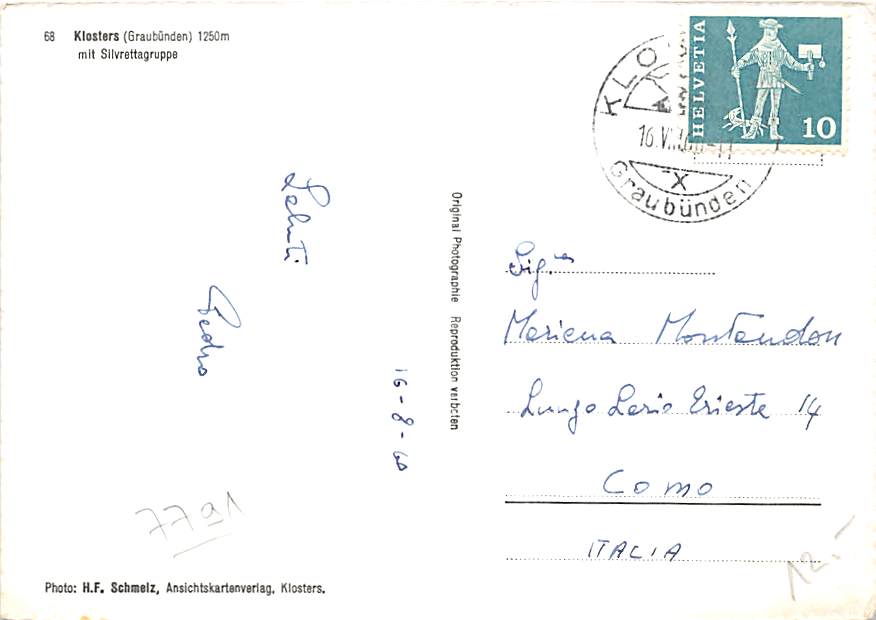 68 Klosters (Graubünden) 1250m
mit Silvrettagruppe
HELVETIA
10
KLO
16.VI
X
Graubünden
Saluti
Pedro
16-8-60
Original Photographie Reproduktion verboten
Sig.na
Mariena Montandon
Lungo Lario Trieste 14
Como
ITALIA
7791
12.-
Photo: H.F. Schmelz, Ansichtskartenverlag, Klosters.